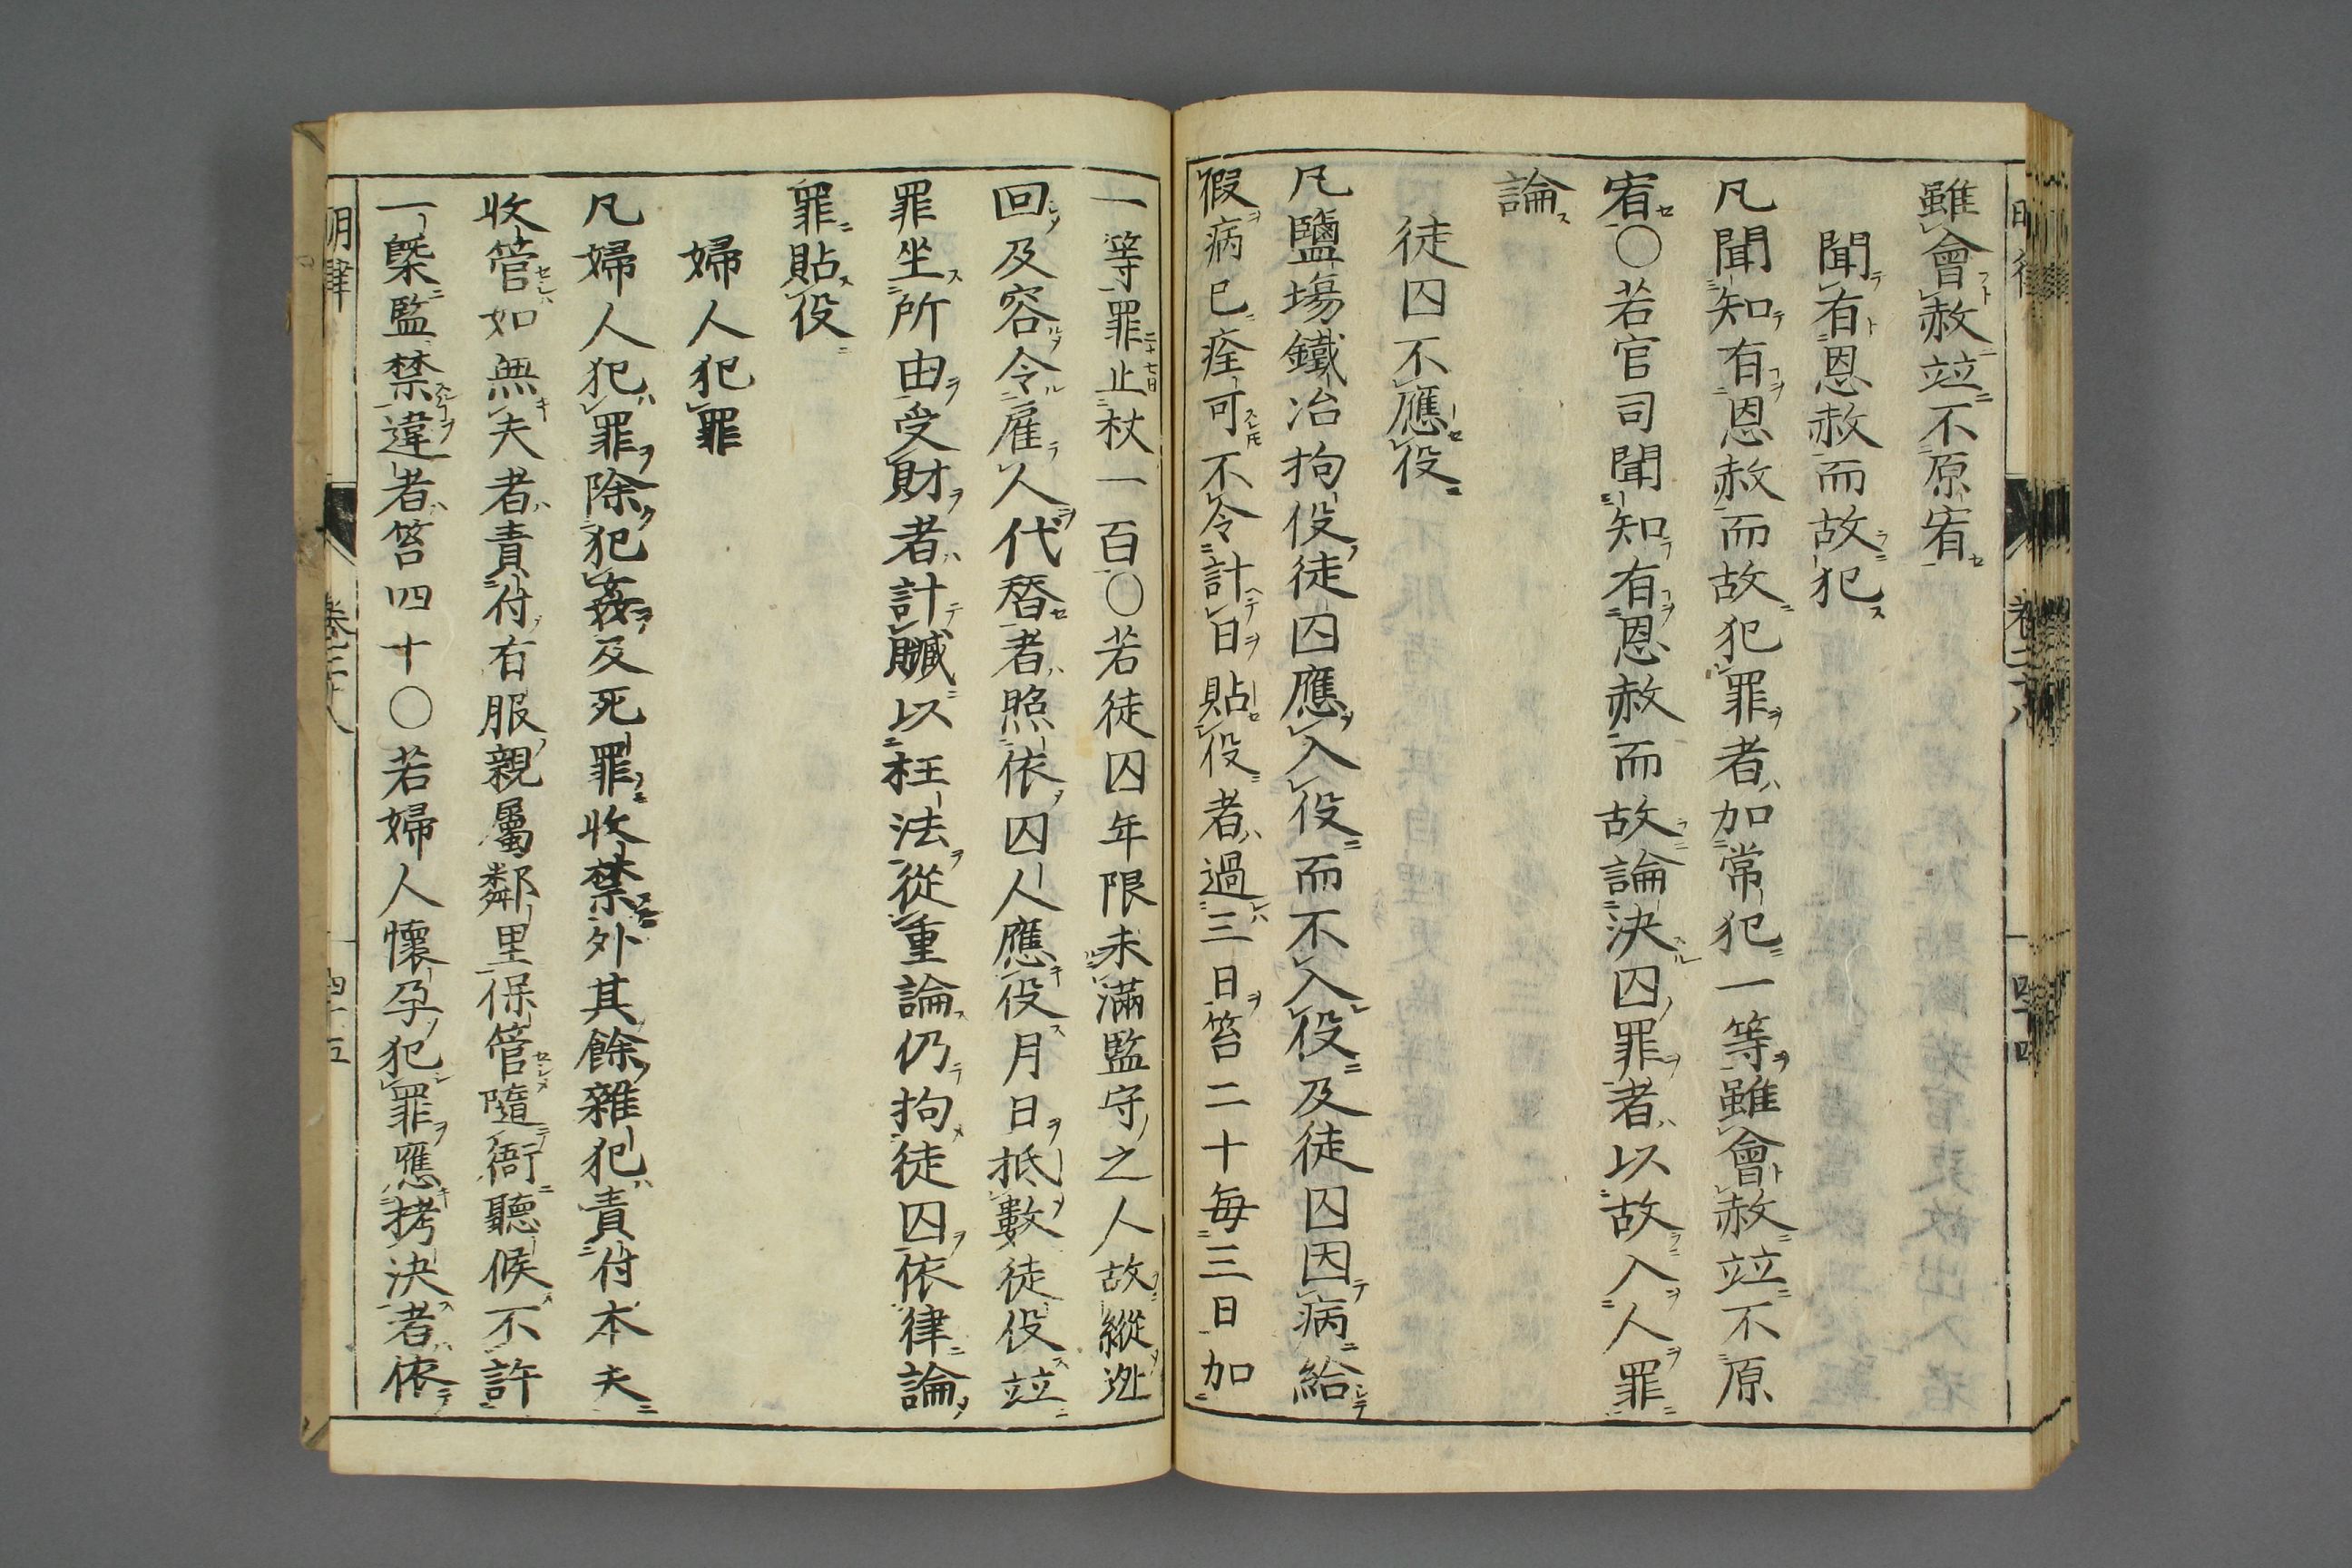 雖會赦竝不原宥
聞有恩赦而故犯
凡聞知有恩赦而故犯罪者加常犯一等雖會赦竝不原
宥○若官司聞知有恩赦而故論決囚罪者以故入人罪
論
徒囚不應役
凡鹽場鐵冶拘役徒囚應入役而不入役及徒囚因病給
假病已痊可不令計日貼役者過三日笞二十每三日加
一等罪止杖一百○若徒囚年限未滿監守之人故縱逃
回及容令雇人代替者照依囚人應役月日抵數徒役竝
罪坐所由受財者計贓以枉法從重論仍拘徒囚依律論
罪貼役
婦人犯罪
凡婦人犯罪除犯姦及死罪收禁外其餘雜犯責付本夫
收管如無夫者責付有服親屬鄰里保管隨衙聽候不許
一槩監禁違者笞四十○若婦人懷孕犯罪應拷決者依
明律 卷二十八 四十五